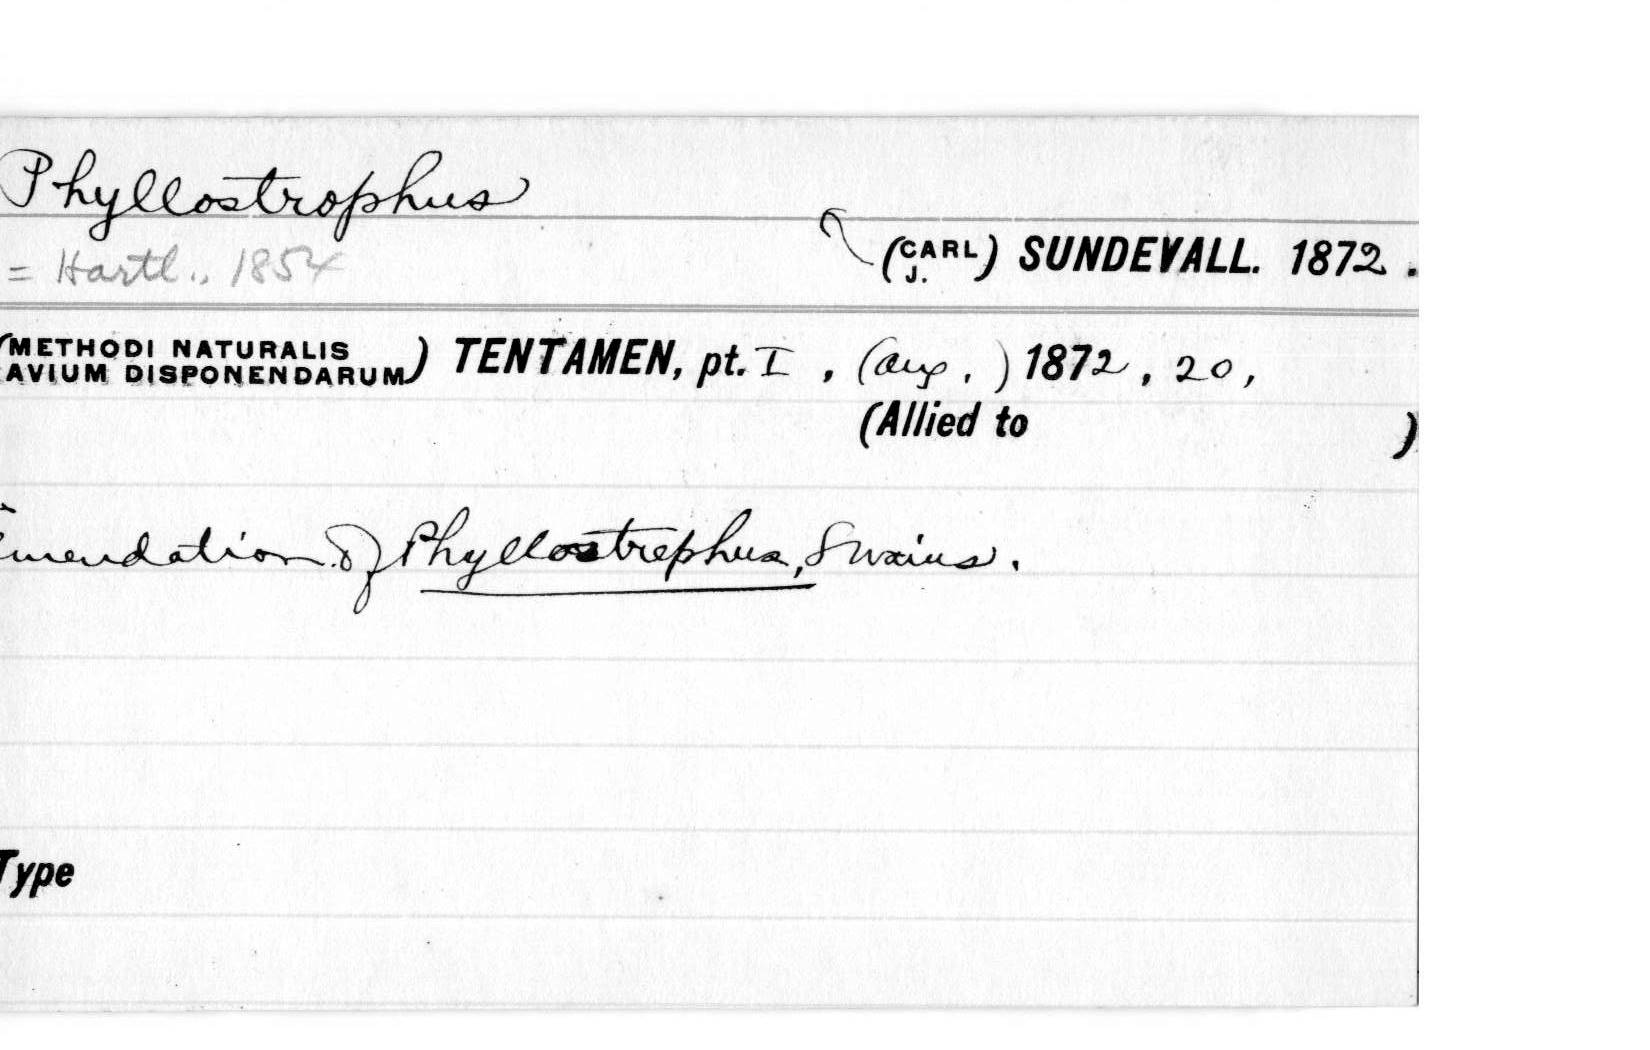 Phyllostrophus
= Hartl., 1854
(CARL J.) SUNDEVALL. 1872.
(METHODI NATURALIS AVIUM DISPONENDARUM) TENTAMEN, pt. I, (Aug.) 1872, 20,
(Allied to )
Emendation of Phyllostrephus, Swains.
Type